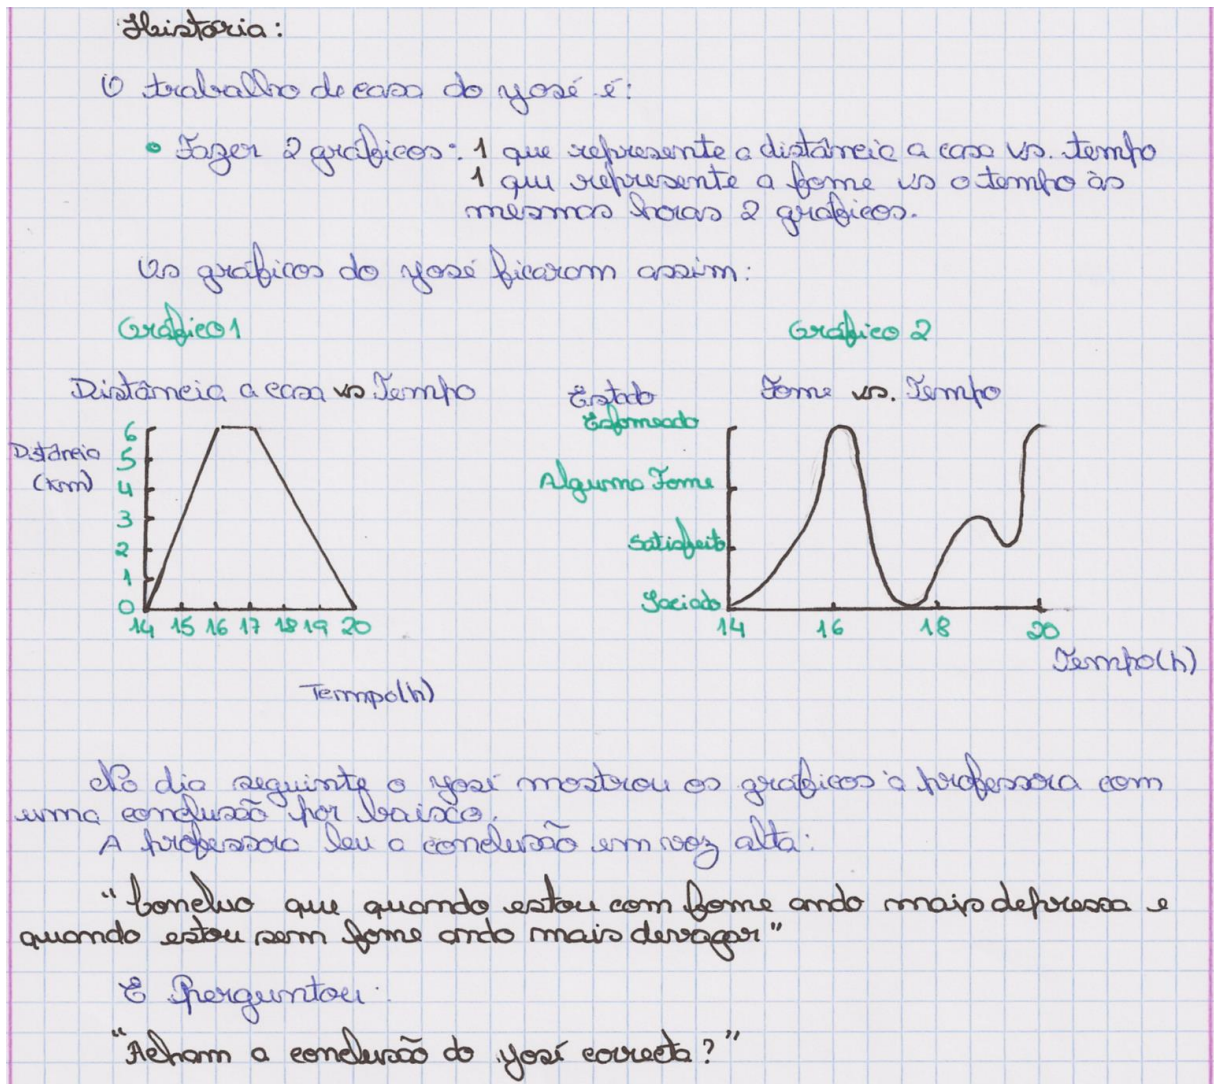 História:
O trabalho de casa do José é:
• Fazer 2 gráficos: 1 que represente a distância a casa vs. tempo
1 que represente a fome vs o tempo às
mesmas horas 2 gráficos.
Os gráficos do José ficaram assim:
Gráfico 1
Gráfico 2
Distância a casa vs Tempo
Estado
Fome vs. Tempo
Distância
(Km)
6
5
4
3
2
1
0
14 15 16 17 18 19 20
Tempo(h)
Esfomeado
Alguma Fome
Satisfeito
Saciado
14 16 18 20
Tempo(h)
No dia seguinte o José mostrou os gráficos à professora com
uma conclusão por baixo.
A professora leu a conclusão em voz alta:
"Concluo que quando estou com fome ando mais depressa e
quando estou sem fome ando mais devagar"
E Perguntou:
"Acham a conclusão do José correcta?"